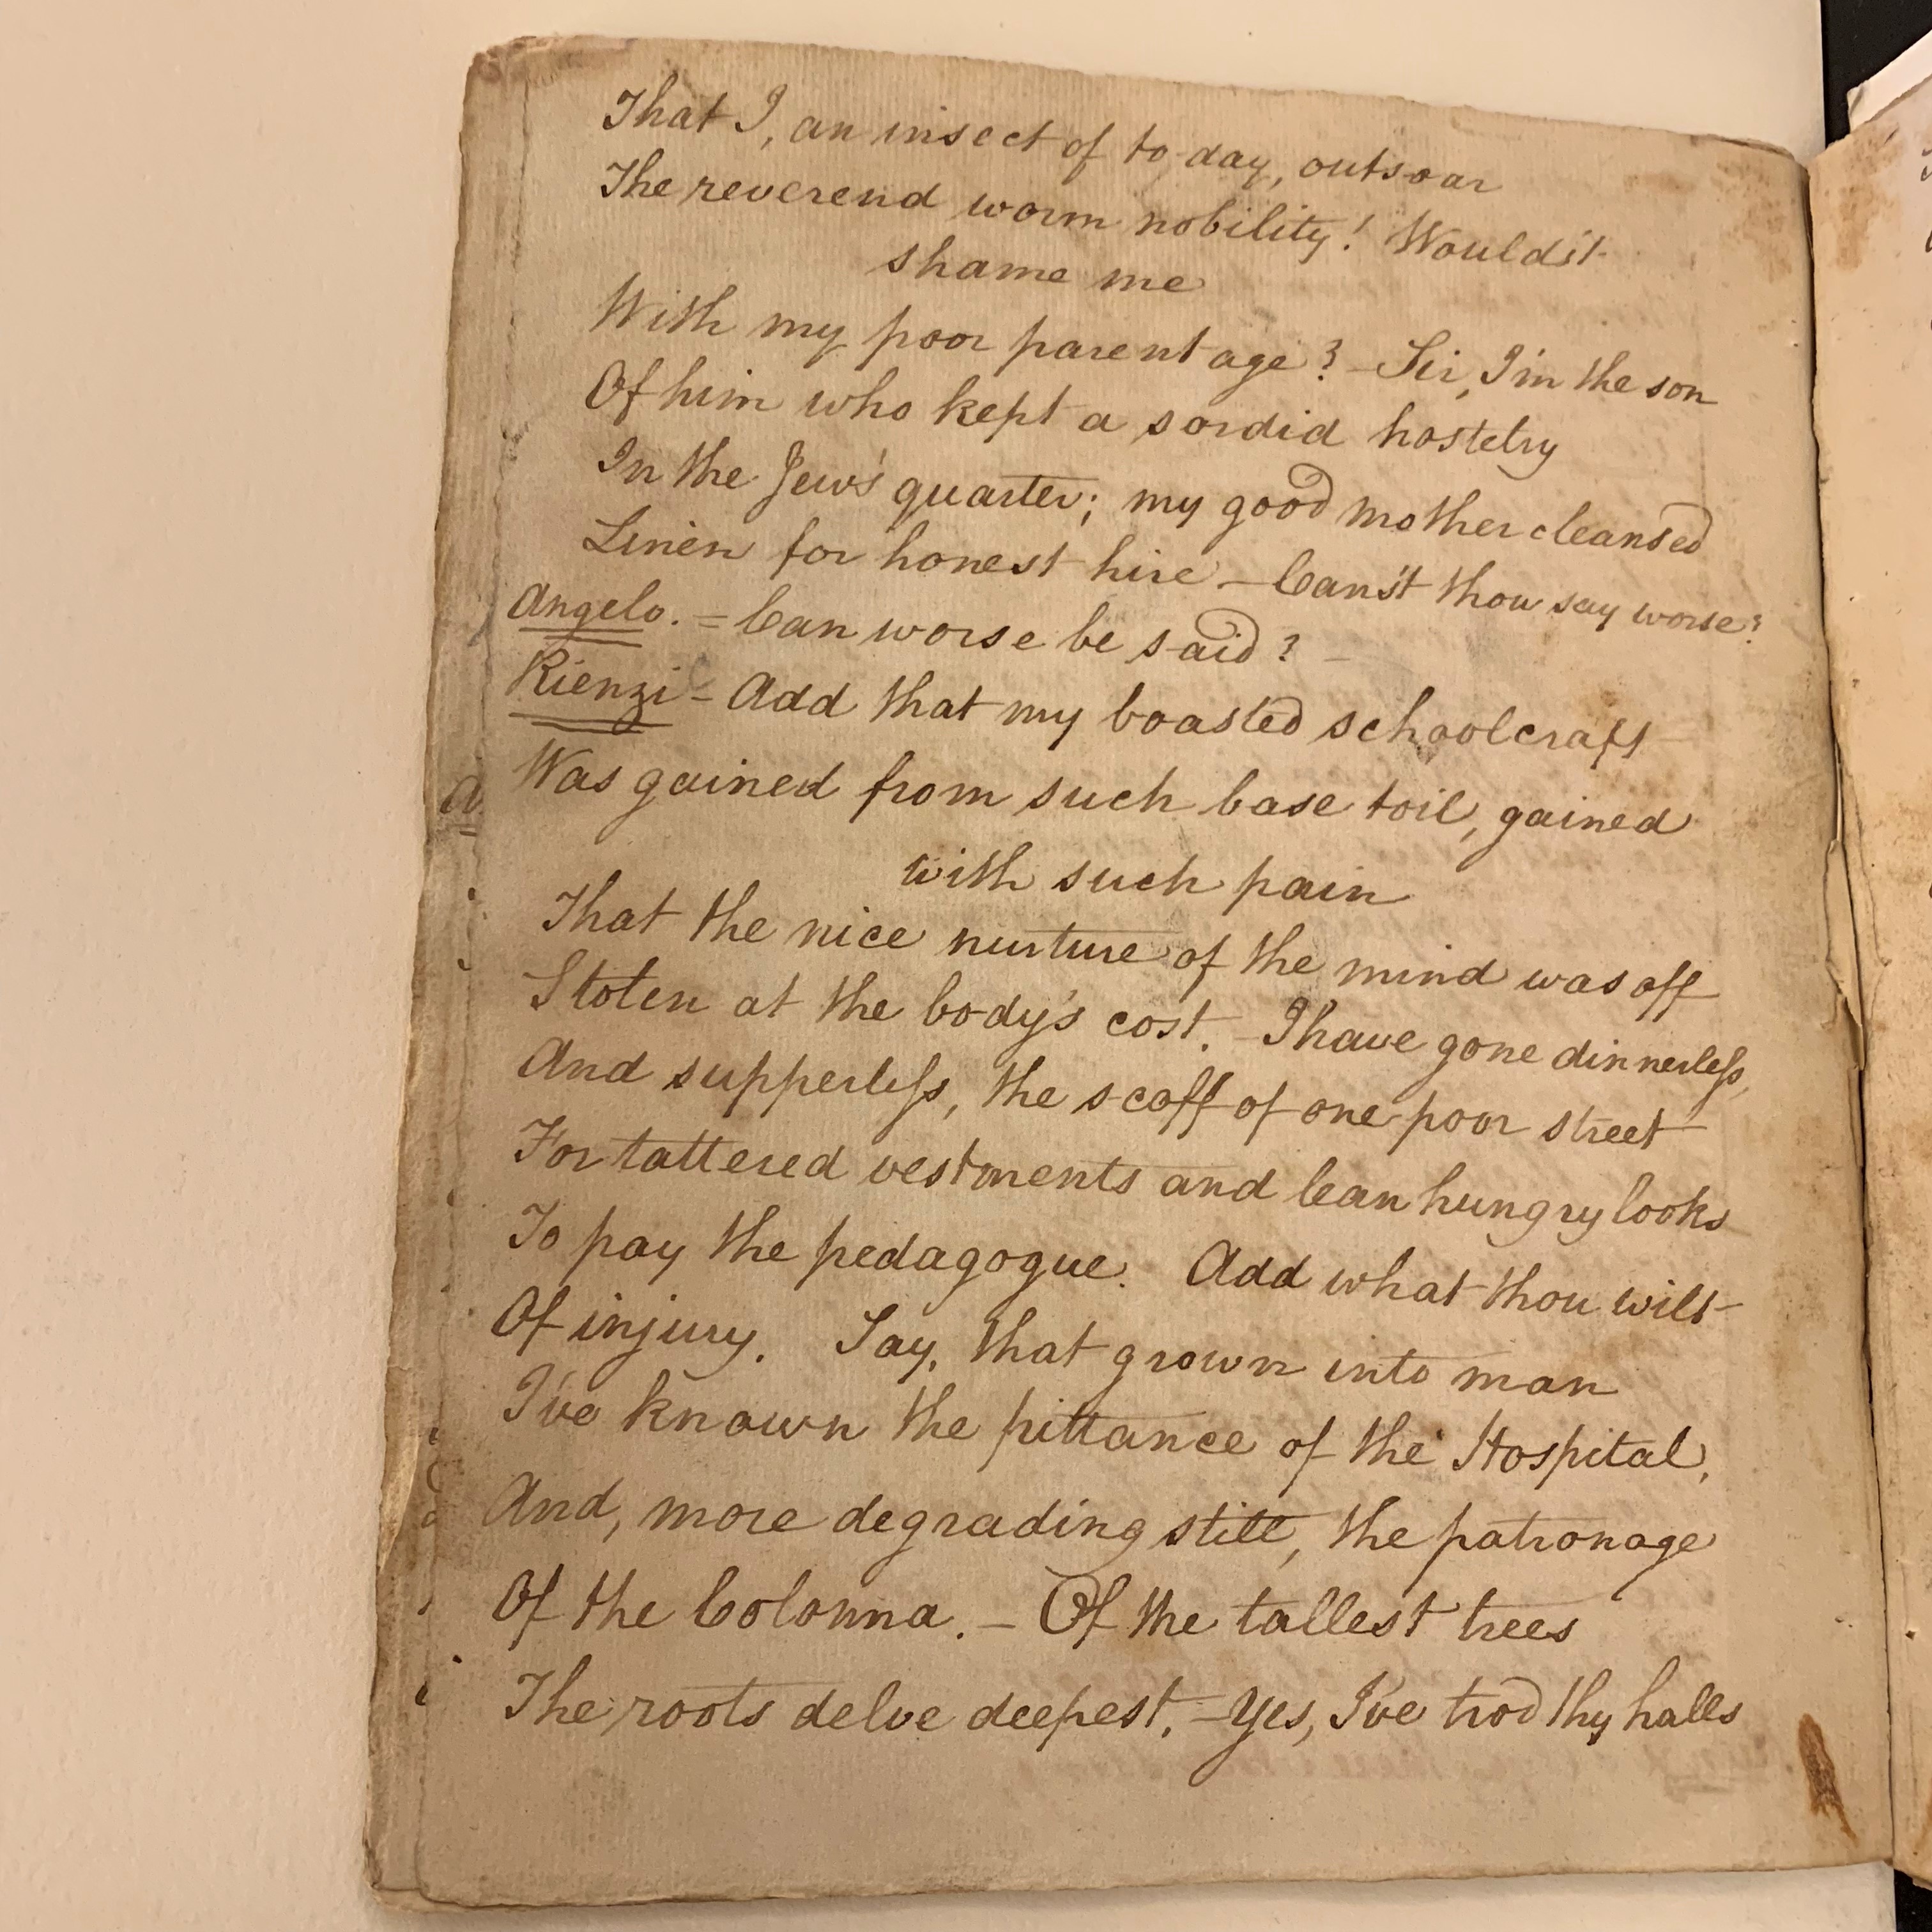 That I, an insect of to-day, outsoar
The reverend worm nobility! Would'st
shame me
With my poor parentage? – Sir, I'm the son
Of him who kept a sordid hostelry
In the Jew's quarter; my good mother cleansed
Linen for honest hire – Can'st thou say worse?
Angelo. = Can worse be said? –
Rienzi – Add that my boasted schoolcraft
Was gained from such base toil, gained
with such pain
That the nice nurture of the mind was oft
Stolen at the body's cost. – I have gone dinnerleſs,
And supperleſs, the scoff of one poor street
For tattered vestments and lean hungry looks
To pay the pedagogue. Add what thou wilt
Of injury. Say, that grown into man
I've known the pittance of the Hospital,
And, more degrading still, the patronage
Of the Colonna. – Of the tallest trees
The roots delve deepest. – Yes, I've trod thy halls